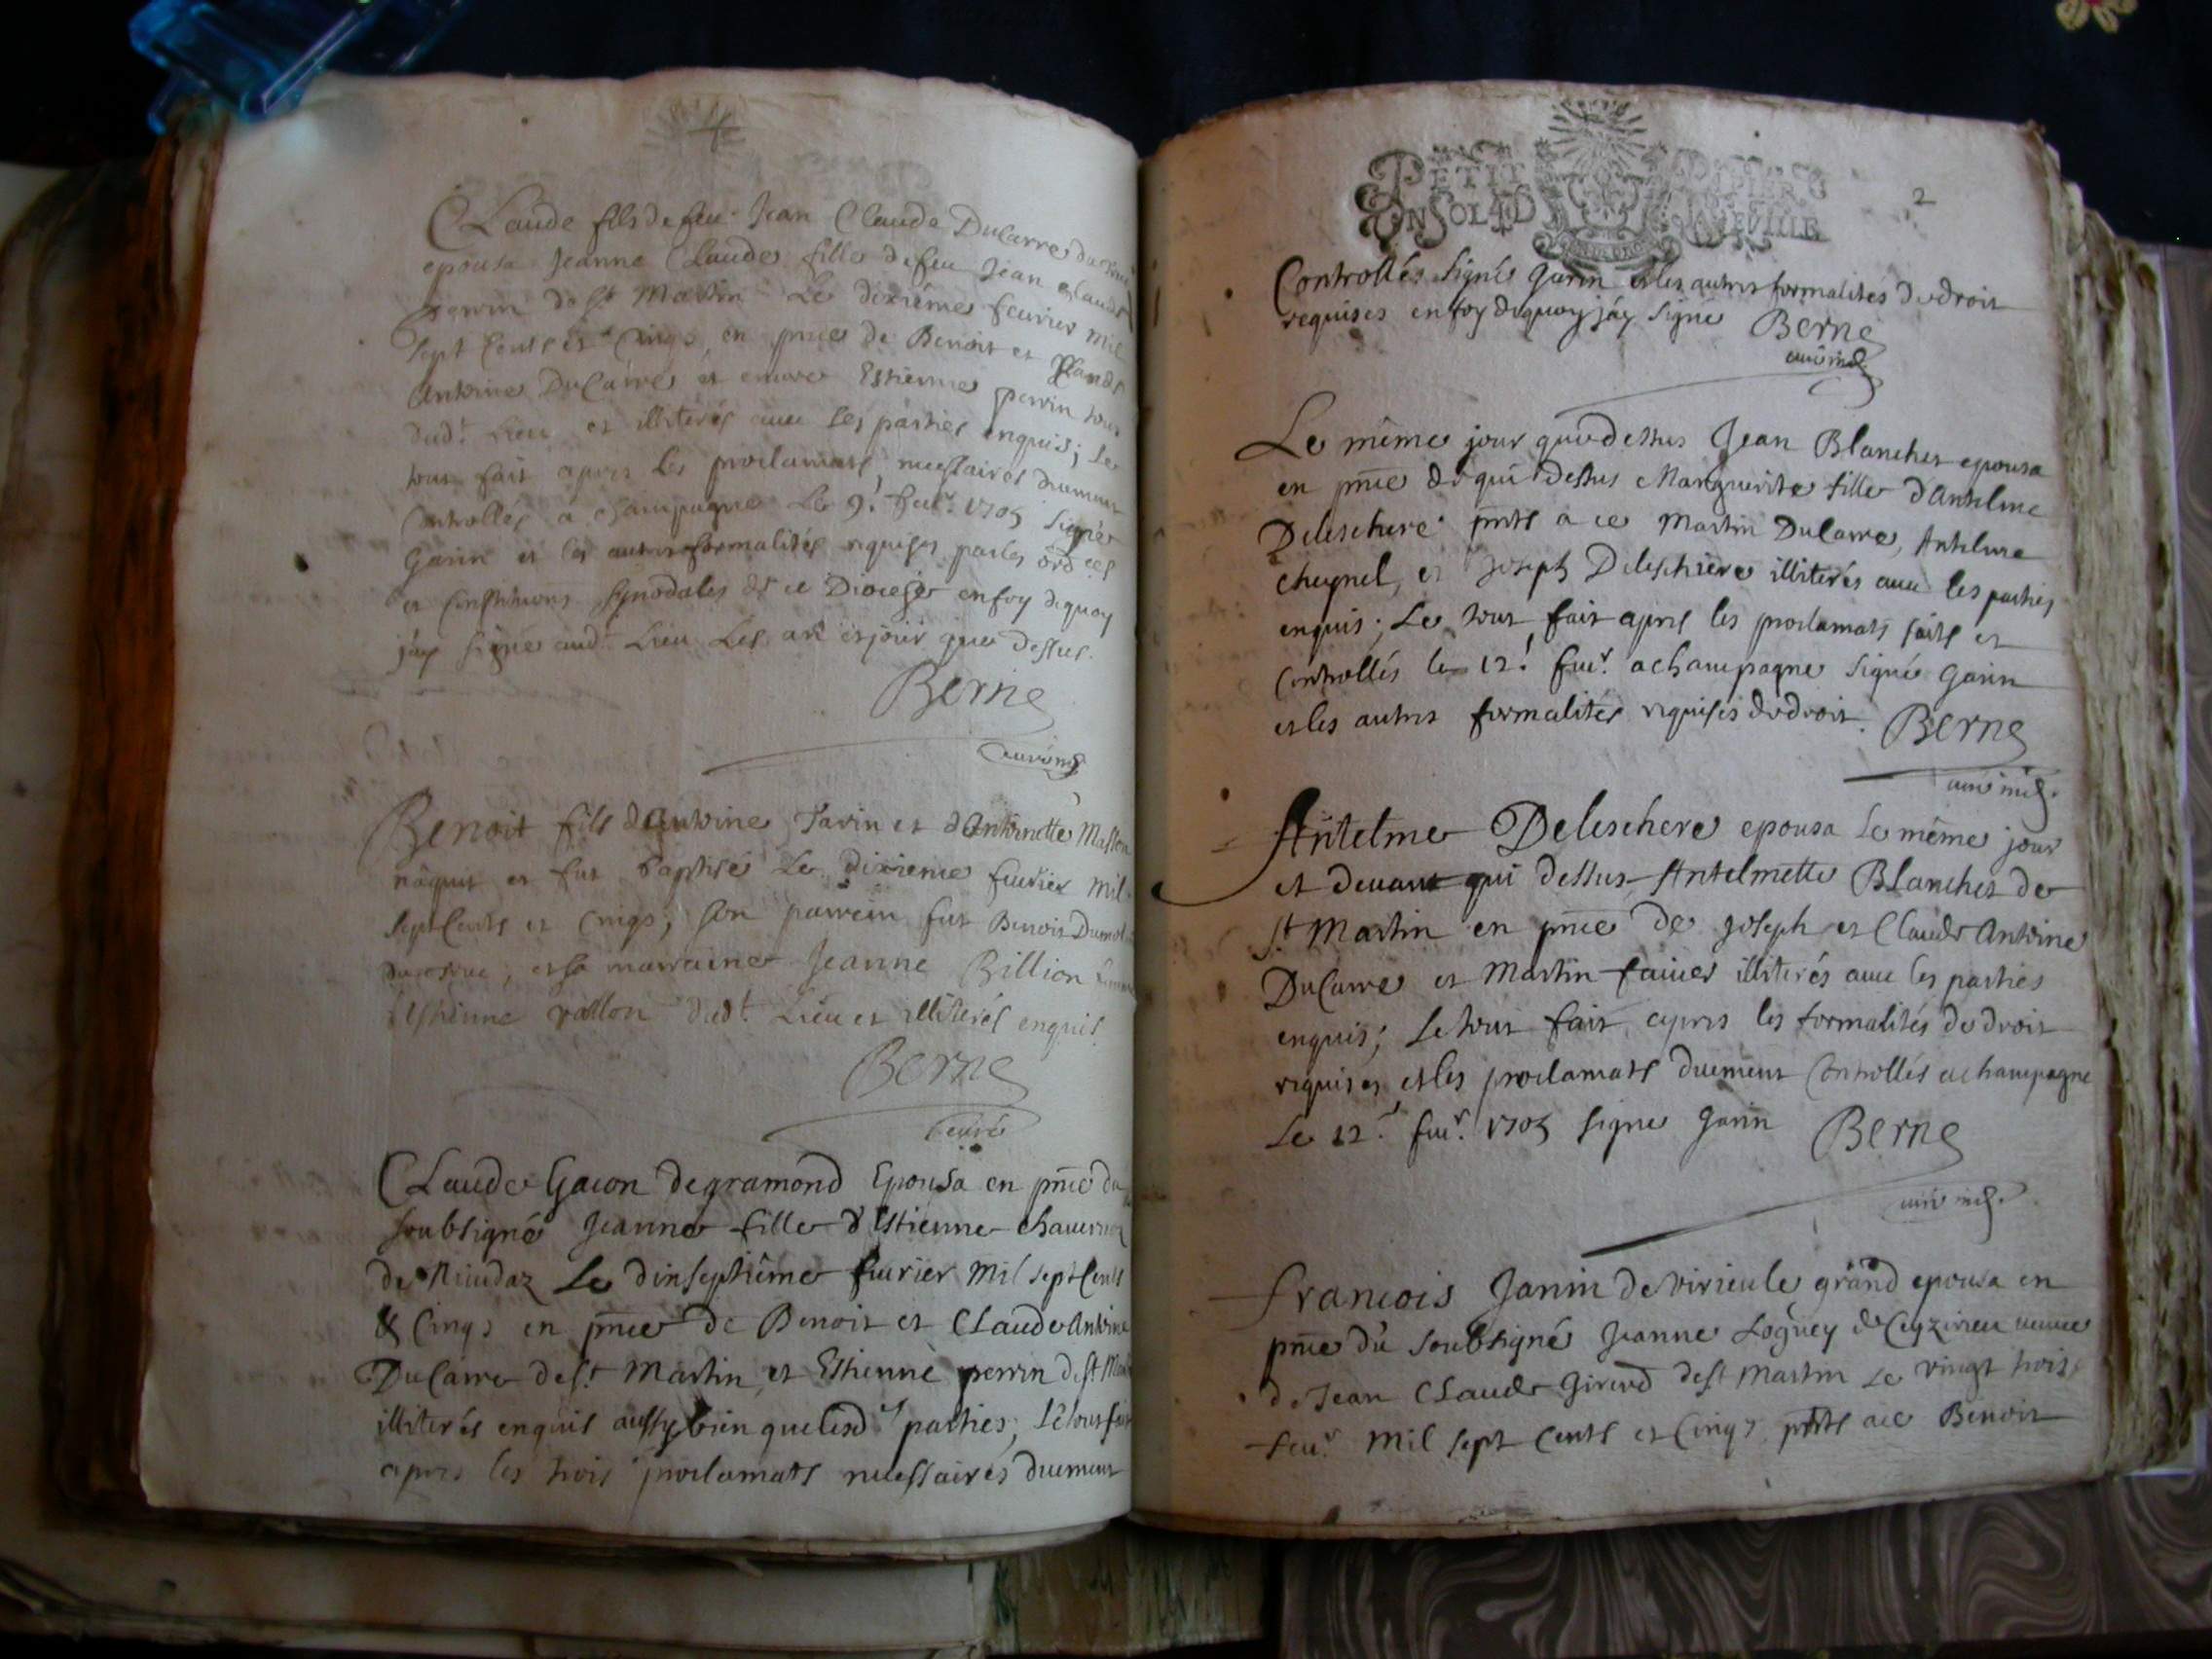 Claude fils de feu Jean Claude DuCarre du
epousa Jeanne Claude fille de feu Jean Claude
perrin de St Martin Le dixiéme feurier mil
sept Cents et Cinq, en pnce de Benoit et Claude
Antoine DuCarre et encore Estienne perrin tous
dudt Lieu et illiterés auec les parties enquis; Le
tout fait apres les proclamats necessaires duement
Controllés a champagne Le 9e feur 1705 signé
Garin et les autres formalités requises par les ord ces
et Constitutions synodales de ce Diocese en foy dequoy
j'ay signé aud Lieu Les an et jour que dessus.
Berne
curé
Benoit fils d'Antoine Tavin et d'Antoinette
nâquit et fut baptisé Le dixieme feurier mil
sept Cents et Cinq; son parrein fut Benoit
et sa marraine Jeanne Billion
d'Estienne vallon dudt Lieu et illiterés enquis.
Berne
curé
Claude Gacon de gramond Epousa en pnce du
soubsigné Jeanne fille d'Estienne
de Le dixseptiême feurier Mil sept Cents
& Cinq en pnce de Benoit et Claude Antoine
DuCarre de St Martin, et Estienne perrin de St
illiterés enquis aussy bien que lesd parties; Le tout fait
apres les trois proclamats necessaires duement
PETIT PAPIER
UN SOL 4 D LA FEVILLE
2
Controllés signé Garin et les autres formalités de droit
requises en foy dequoy j'ay signé Berne
curé
Le même jour que dessus Jean Blanchet epousa
en pnce de qui dessus Marguerite fille d'Antelme
Deleschere pnts a ce Martin DuCarre, Antelme
cheynel, et Joseph Deleschiere illiterés auec les parties
enquis; Le tout fait apres les proclamats faits et
Controllés le 12e feur a champagne signé Garin
et les autres formalités requises de droit. Berne
curé
Antelme Deleschere epousa Le même jour
et deuant qui dessus Antelmette Blanchet de
St Martin en pnce de Joseph et Claude Antoine
DuCarre et Martin illiterés auec les parties
enquis; Le tout fait apres les formalités de droit
requises et les proclamats duement Controllés a champagne
Le 12e feur 1705 signé Garin Berne
curé
Francois Janin de virieu le grand epousa en
pnce du soubsigné Jeanne Loguey de Ceyzirieu veuve
de Jean Claude Girerd de St Martin Le vingt trois
feur Mil sept Cents et Cinq pnts a ce Benoit